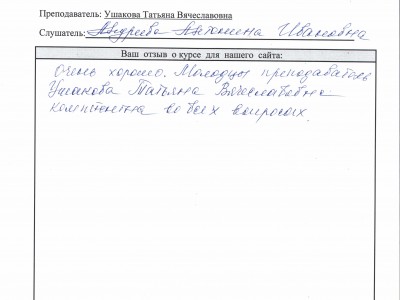 Преподаватель: Ушакова Татьяна Вячеславовна
Слушатель: Андреева Антонина Ивановна
Ваш отзыв о курсе для нашего сайта:
Очень хорошо. Молодцы преподаватель
Ушакова Татьяна Вячеславовна
компетентна во всех вопросах.